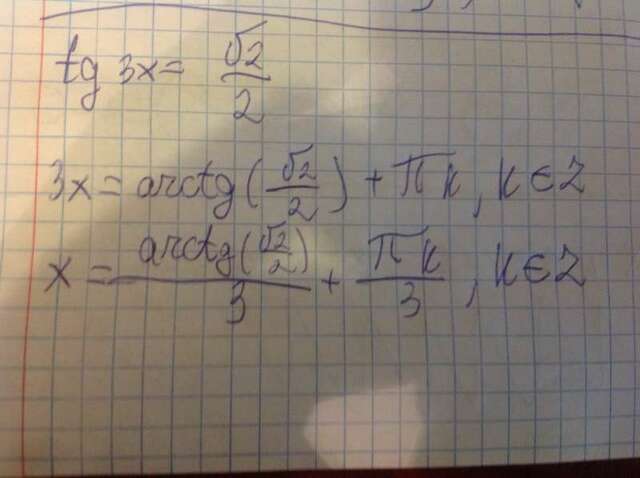 tg 3x = √2/2
3x = arctg(√2/2) + πk, k ∈ Z
x = arctg(√2/2)/3 + πk/3, k ∈ Z